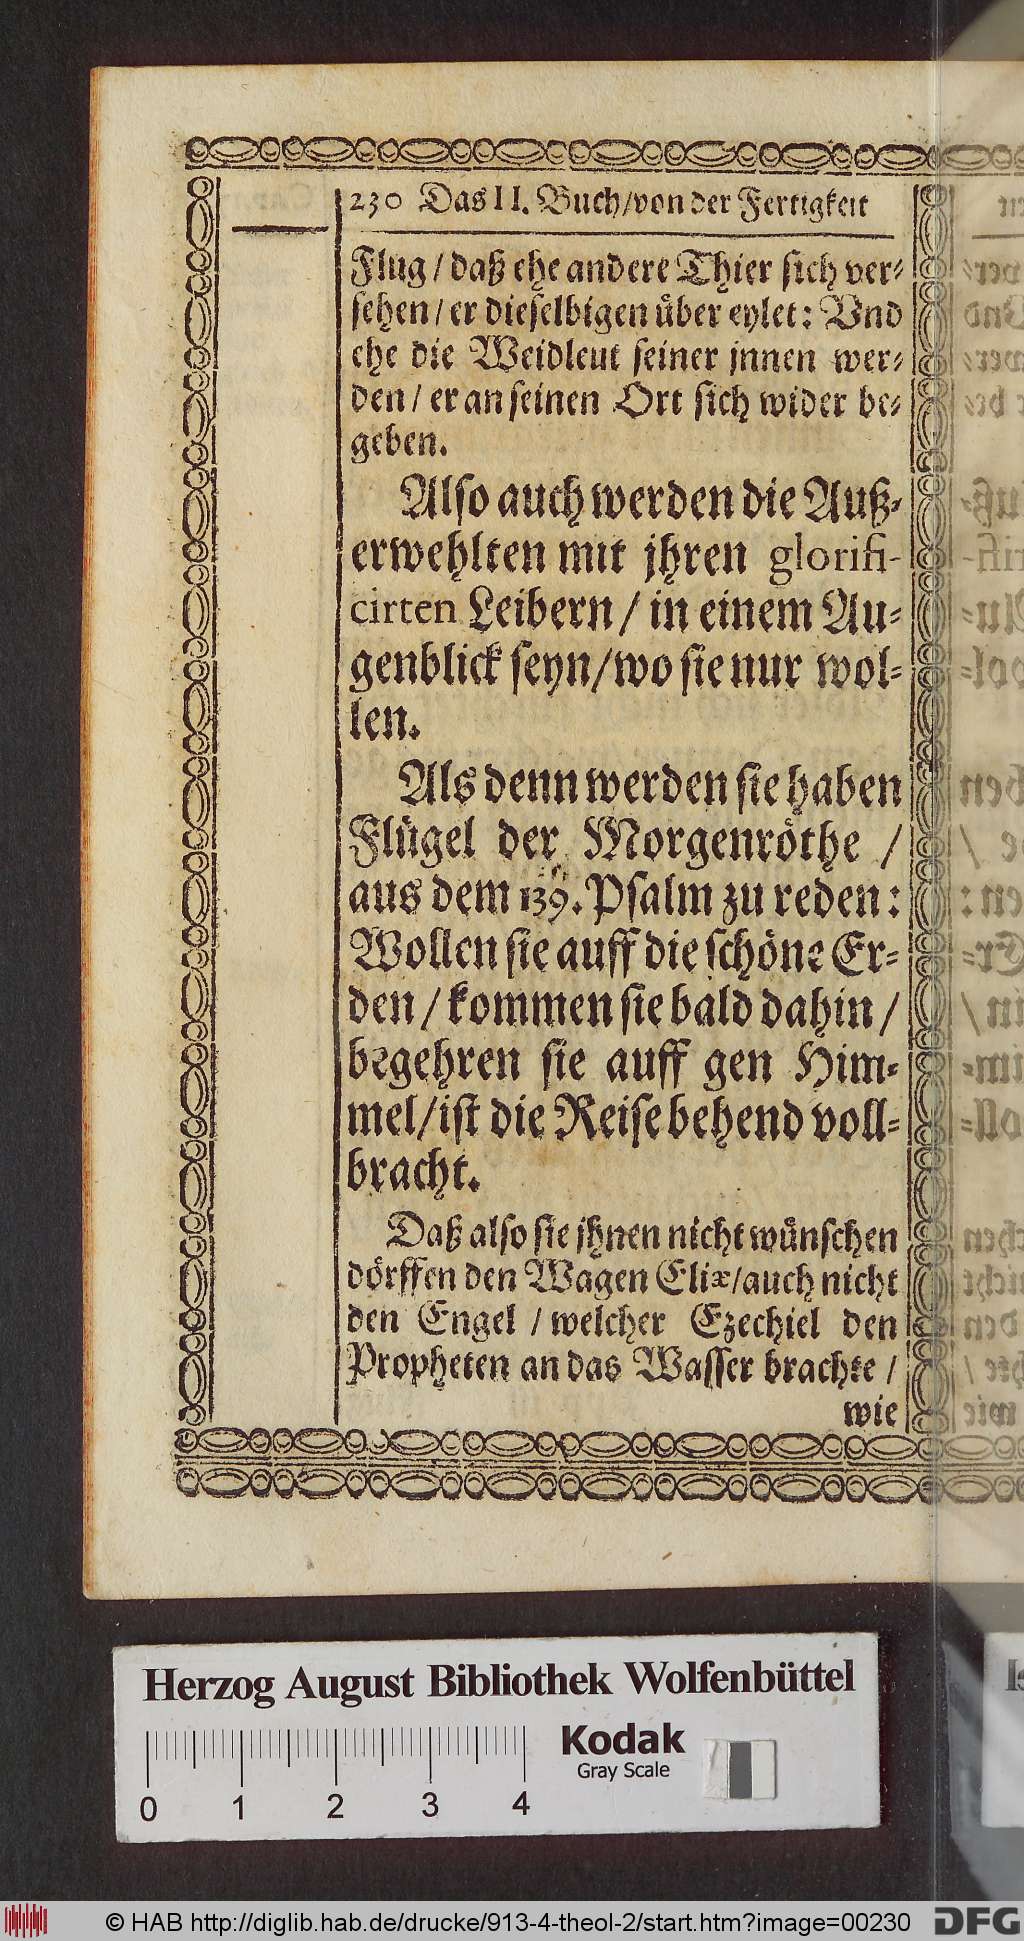 230 Das II. Buch/von der Fertigkeit
Flug / daß ehe andere Thier sich ver⸗
sehen / er dieselbigen über eylet: Vnd
ehe die Weidleut seiner jnnen wer⸗
den / er an seinen Ort sich wider be⸗
geben.
Also auch werden die Auß⸗
erwehlten mit jhren glorifi-
cirten Leibern / in einem Au⸗
genblick seyn/wo sie nur wol⸗
len.
Als denn werden sie haben
Flügel der Morgenröthe /
aus dem 139. Psalm zu reden:
Wollen sie auff die schöne Er⸗
den / kommen sie bald dahin /
begehren sie auff gen Him⸗
mel/ist die Reise behend voll⸗
bracht.
Daß also sie jhnen nicht wünschen
dörffen den Wagen Eliæ/auch nicht
den Engel / welcher Ezechiel den
Propheten an das Wasser brachte /
wie
Herzog August Bibliothek Wolfenbüttel
Kodak
Gray Scale
0 1 2 3 4
© HAB http://diglib.hab.de/drucke/913-4-theol-2/start.htm?image=00230
DFG